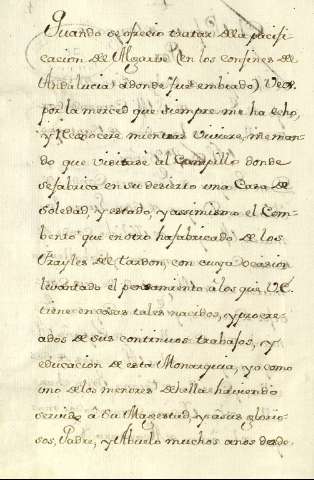 Quando se ofrecio tratar dela pacifi
cacion de Algarbe (en los confines de
Andalucia) adonde fui embiado) Vex.
por la merced que siempre me ha echo,
y reconocere mientras viviere, me man-
do que visitase al Campillo donde
se fabrica en su desierto una Casa de
soledad, y estado, y asimismo el Com-
bento que en otro ha fabricado de los
Frayles de Tardon, con cuya ocasion
levantado el pensamiento a los que VE
tiene en cosas tales nacidos, y procre-
ados de sus continuos trabajos, y
educacion de esta Monarquia, yo como
uno de los menores de halla haviendo
servido â Su Magestad, y a sus glorio-
sos, Padre, y Abuelo muchos años desde